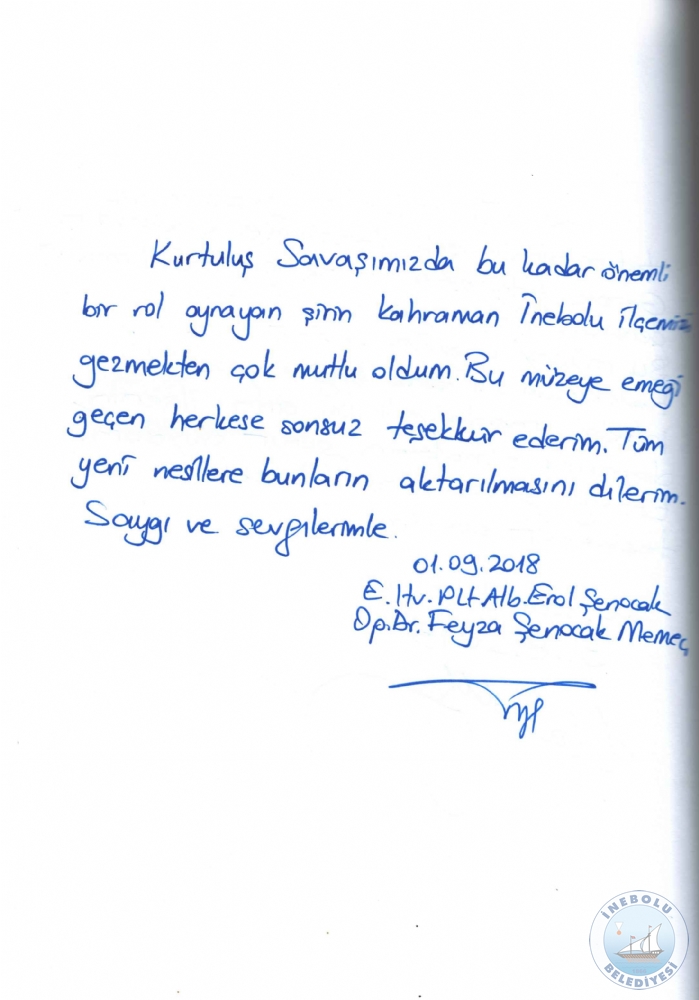 Kurtuluş Savaşımızda bu kadar önemli
bir rol oynayan şirin kahraman İnebolu ilçemizi
gezmekten çok mutlu oldum. Bu müzeye emeği
geçen herkese sonsuz teşekkür ederim. Tüm
yeni nesillere bunların aktarılmasını dilerim.
Saygı ve sevgilerimle.
01.09.2018
E. Hv. Plt Alb. Erol Şenocak
Op. Dr. Feyza Şenocak Memeç
İNEBOLU
BELEDİYESİ